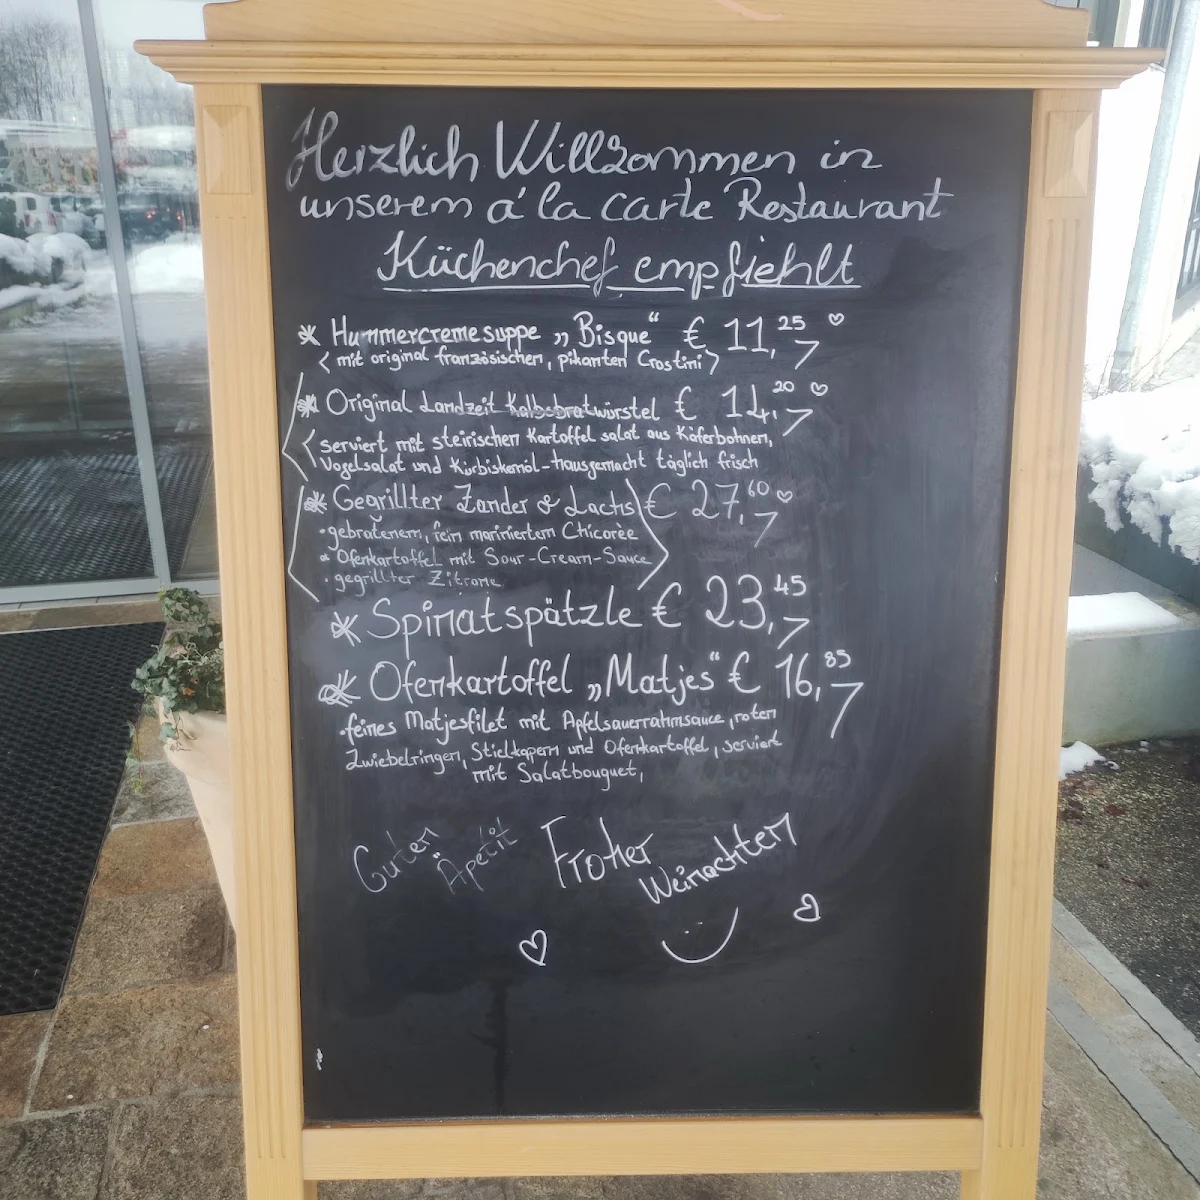 Herzlich Willkommen in
unserem á la carte Restaurant
Küchenchef empfiehlt
* Hummercremesuppe „Bisque“ € 11,25
<mit original französischen, pikanten Crostini>
* Original Landzeit Kalbsbratwürstel € 14,20
serviert mit steirischen Kartoffel salat aus Käferbohnen,
Vogelsalat und Kürbiskernöl-hausgemacht täglich frisch
* Gegrillter Zander & Lachs € 27,60
• gebratenem, fein mariniertem Chicorèe
• Ofenkartoffel mit Sour-Cream-Sauce
• gegrillter Zitrone
* Spinatspätzle € 23,45
* Ofenkartoffel „Matjes“ € 16,85
• feines Matjesfilet mit Apfelsauerrahmsauce, roten
Zwiebelringen, Stielkapern und Ofenkartoffel, serviert
mit Salatbouquet,
Guten Äpetit
Froher
Weinachten